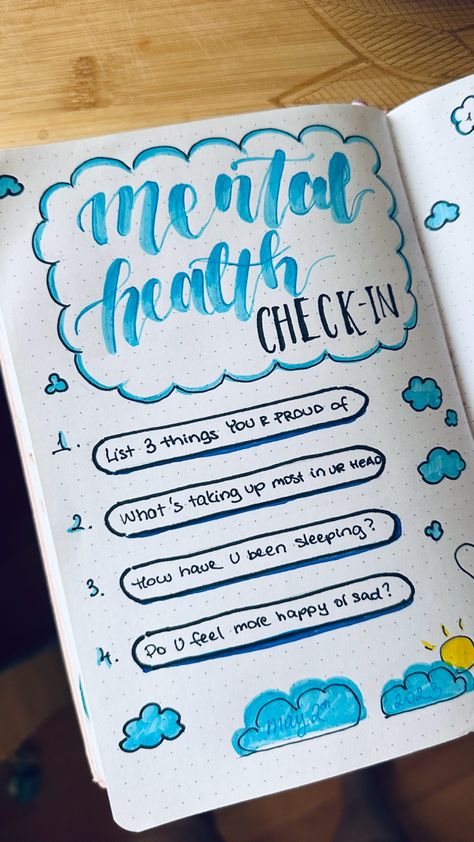 mental
health
CHECK-IN
1. List 3 things YOU R PROUD OF
2. What's taking up most in UR HEAD
3. How have U been sleeping?
4. Do U feel more happy or sad?
may 2th